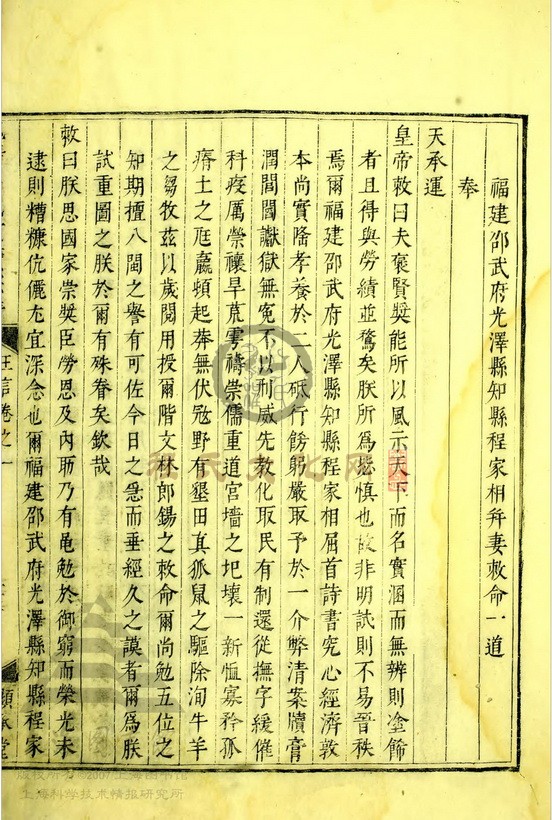 福建邵武府光澤縣知縣程家相并妻敕命一道
奉
天承運
皇帝敕曰夫褒賢奬能所以風示天下而名實溷而無辨則塗飾
者且得與勞績並騖矣朕所為慎也故非明試則不易晉秩
焉爾福建邵武府光澤縣知縣程家相屈首詩書究心經濟敦
本尚實隆孝養於二人砥行飭躬嚴取予於一介弊清案牘膏
潤閭閻讞獄無冤不以刑威先敎化取民有制還從撫字緩催
科疫厲禜禳旱荒雩禱崇儒重道宮墻之圮壞一新恤寡矜孤
瘠土之尫羸頓起莽無伏寇野有墾田真狐鼠之驅除洵牛羊
之芻牧茲以歲閱用授爾階文林郎錫之敕命爾尚勉五位之
知期擅八閩之譽有可佐今日之急而垂經久之謨者爾為朕
試重圖之朕於爾有殊眷矣欽哉
敕曰朕思國家崇奬臣勞恩及內乃有黽勉於御窮而榮光未
逮則糟糠伉儷尤宜深念也爾福建邵武府光澤縣知縣程家
王言卷之一
顯承堂
程氏文化网
版权所有©2007上海图书馆
上海科学技术情报研究所